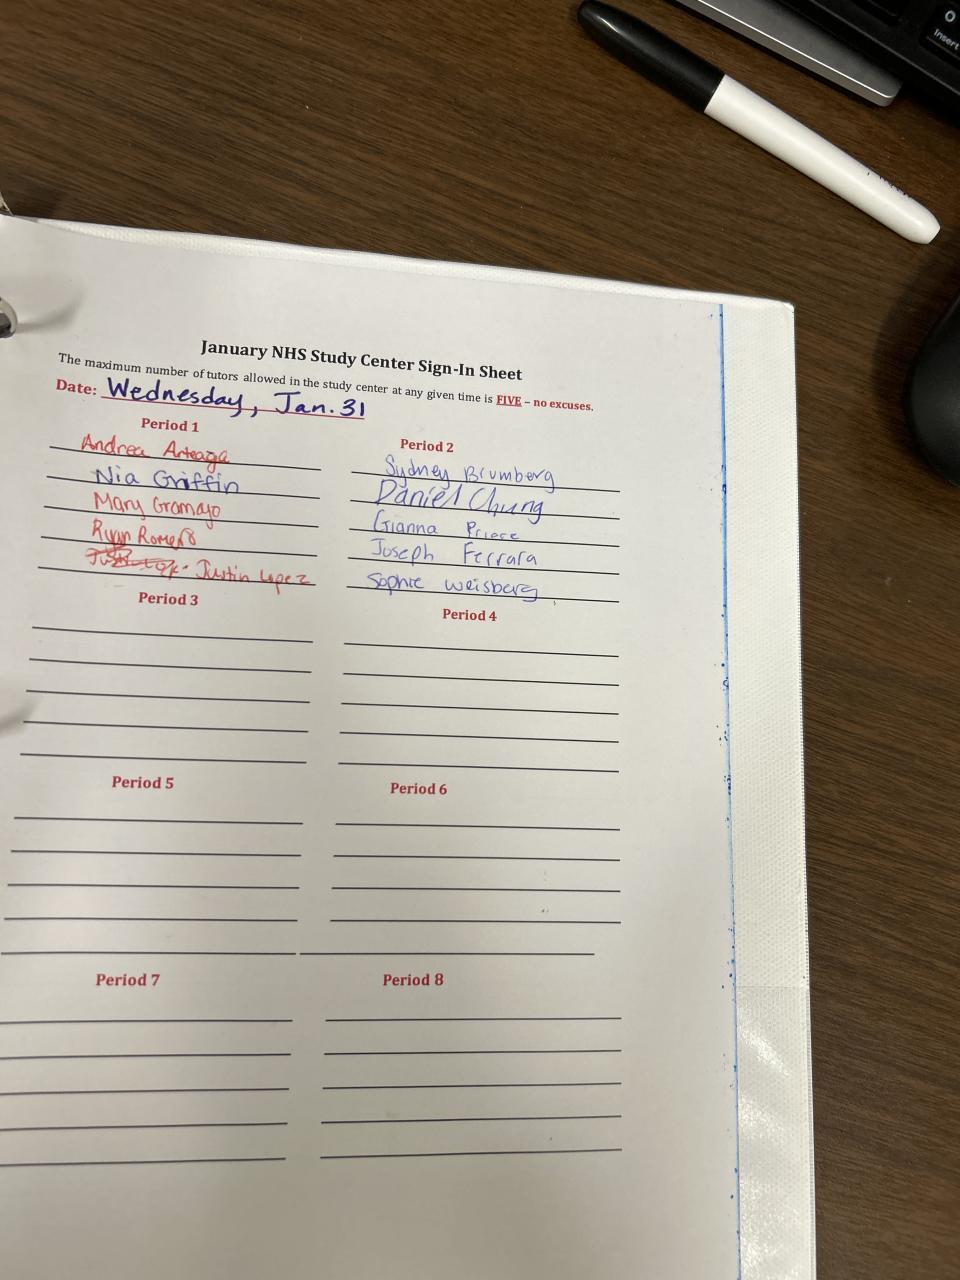 January NHS Study Center Sign-In Sheet
The maximum number of tutors allowed in the study center at any given time is FIVE – no excuses.
Date: Wednesday, Jan. 31
Period 1
Andrea Arteaga
Nia Griffin
Mary Gramajo
Ryan Romero
Justin Lopez
Period 2
Sydney Brumberg
Daniel Chung
Gianna
Joseph Ferrara
Sophie Weisberg
Period 3
Period 4
Period 5
Period 6
Period 7
Period 8
0
Insert